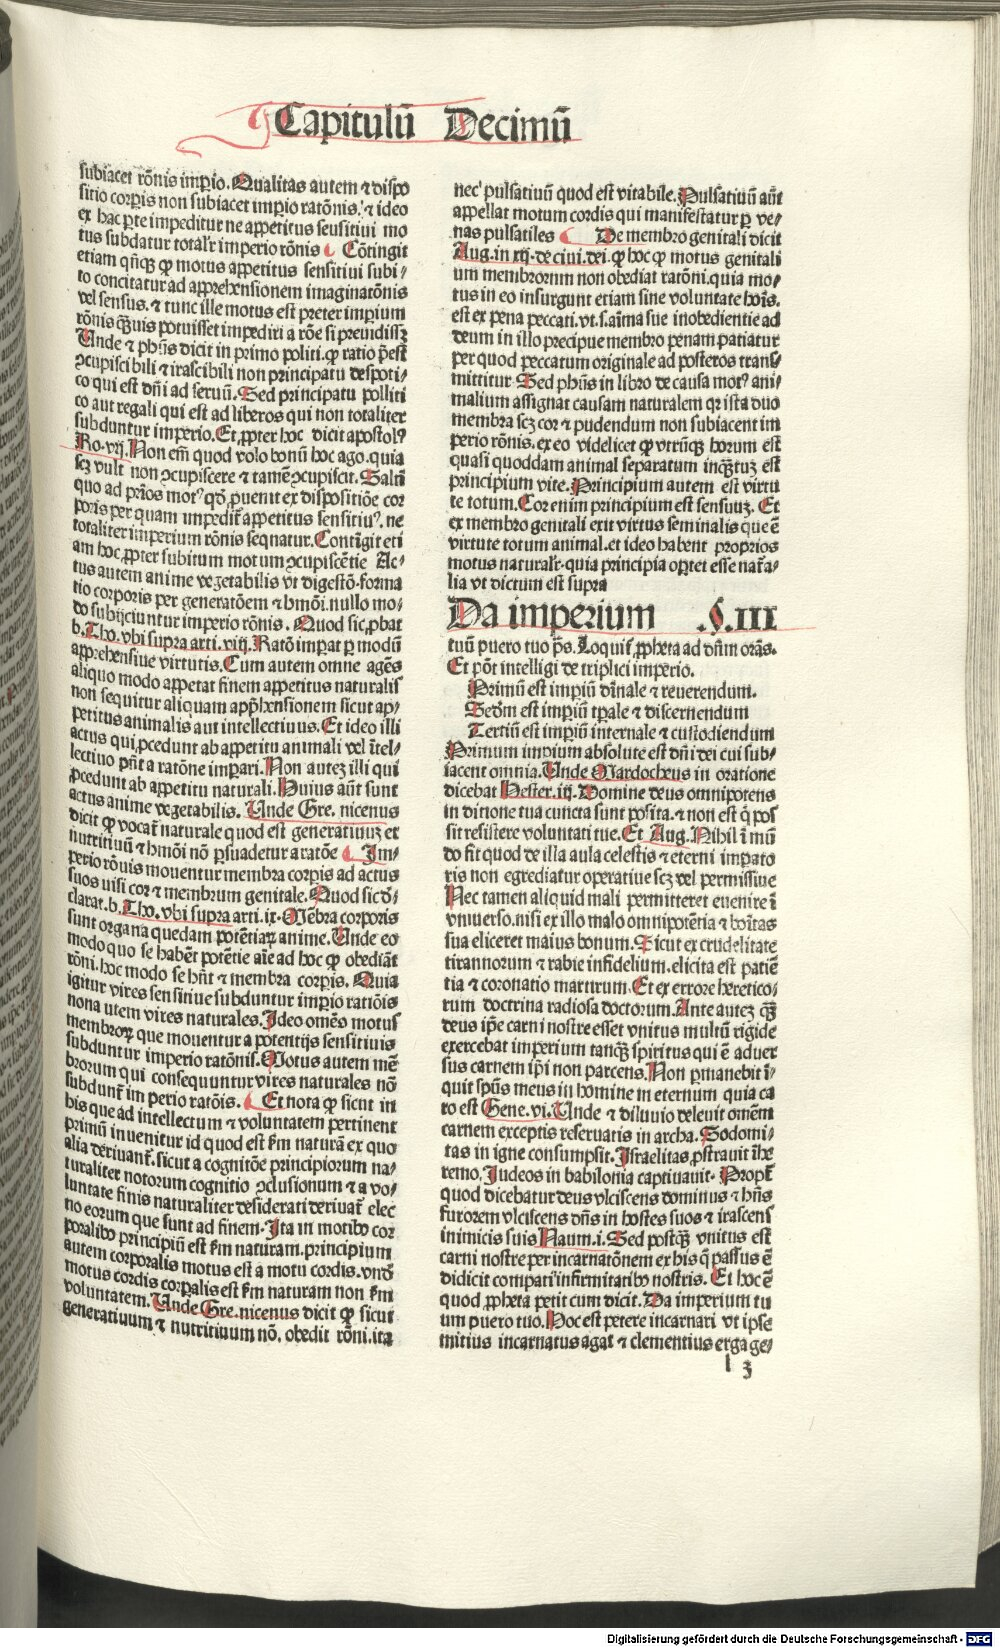 Capitulū Decimū
subiacet rōnis imperio. Qualitas autem ⁊ dispo
sitio corporis non subiacet imperio ratōnis. ⁊ ideo
ex hac parte impeditur ne appetitus sensitiui mo
tus subdatur totalr imperio rōnis Cōtingit
etiam qn̄qꝫ ꝙ motus appetitus sensitiui subi⸗
to concitatur ad apprehensionem imaginatōnis
vel sensus. ⁊ tunc ille motus est preter imperium
rōnis qꝫuis potuisset impediri a rōe si preuidissꝫ
Unde ⁊ phūs dicit in primo politi. ꝙ ratio pꝛest
ↄcupiscibili ⁊ irascibili non principatu despoti⸗
co qui est dn̄i ad seruū. Sed principatu politi
co aut regali qui est ad liberos qui non totaliter
subduntur imperio. Et ꝓpter hoc dicit apostolꝰ
Ro. vij. Non em̄ quod volo bonū hoc ago. quia
scꝫ vult non ↄcupiscere ⁊ tamē ↄcupiscit. Saltī
quo ad prīos motꝰ qd̄ ꝓuenit ex dispositiōe cor
poris per quam impedit̄ appetitus sensitiuꝰ. ne
totaliter imperium rōnis sequatur. Contīgit eti
am hoc ꝓpter subitum motum ↄcupiscētie Ac⸗
tus autem anime vegetabilis vt digestō. forma
tio corporis per generatōem ⁊ hmōi. nullo mo⸗
do subijciuntur imperio rōnis. Quod sic ꝓbat
b. Tho. vbi supra arti. viij. Ratō imꝑat ꝑ modū
apprehensiue virtutis. Cum autem omne agēs
aliquo modo appetat finem appetitus naturalis
non sequitur aliquam appꝛehensionem sicut ap⸗
petitus animalis aut intellectiuus. Et ideo illi
actus qui ꝓcedunt ab appetitu animali vel ītel⸗
lectiuo pn̄t a ratōne imꝑari. Non autez illi qui
ꝓcedunt ab appetitu naturali. Huius aūt sunt
actus anime vegetabilis. Unde Gre. nicenus
dicit ꝙ vocat̄ naturale quod est generatiuuꝫ et
nutritiuū ⁊ hmōi nō ꝑsuadetur a ratōe Im⸗
perio rōnis mouentur membra corꝑis ad actus
suos nisi cor ⁊ membrum genitale. Quod sic d⸗
clarat. b. Tho. vbi supra arti. ix. Mēbra corporis
sunt organa quedam potētiaꝝ anime. Unde eo
modo quo se habēt potētie aīe ad hoc ꝙ obediāt
rōni. hoc modo se hn̄t ⁊ membra corꝑis. Quia
igitur vires sensitiue subduntur imꝑio ratiōis
non autem vires naturales. Ideo omēs motus
membroꝝ que mouentur a potentijs sensitiuis
subduntur imperio ratōnis. Motus autem mē
brorum qui consequuntur vires naturales nō
subdunt̄ imperio ratōis. Et nota ꝙ sicut in
his que ad intellectum ⁊ voluntatem pertinent
primū inuenitur id quod est ẜm naturā ex quo
alia deriuant̄. sicut a cognitōe principiorum na⸗
turaliter notorum cognitio ↄclusionum ⁊ a vo⸗
luntate finis naturaliter desiderati deriuat̄ elec
tio eorum que sunt ad finem. Ita in motibꝰ cor
poralibꝰ principiū est ẜm naturam. principium
autem corporalis motus est a motu cordis. vnd̄
motus cordis corꝑalis est ẜm naturam non ẜm
voluntatem. Unde Gre. nicenus dicit ꝙ sicut
generatiuum ⁊ nutritiuum nō. obedit rōni. ita
nec pulsatiuū quod est vitabile. Pulsatiuū aūt
appellat motum cordis qui manifestatur ꝑ ve⸗
nas pulsatiles De membro genitali dicit
Aug. in xiij. de ciui. dei. ꝙ hoc ꝙ motus genitali
um membrorum non obediat ratōni. quia mo⸗
tus in eo insurgunt etiam sine voluntate hoīs.
est ex pena peccati. vt. s. aīma sue inobedientie ad
deum in illo precipue membro penam patiatur
per quod peccatum originale ad posteros trans⸗
mittitur. Sed phūs in libro de causa motꝰ ani⸗
malium assignat causam naturalem qr ista duo
membra scꝫ cor ⁊ pudendum non subiacent im
perio rōnis. ex eo videlicet ꝙ vtrūqꝫ horum est
quasi quoddam animal separatum inqꝫtuꝫ est
principium vite. Principium autem est virtu
te totum. Cor enim principium est sensuuꝫ. Et
ex membro genitali exit virtus seminalis que ē
virtute totum animal. et ideo habent proprios
motus naturalr. quia principia oꝑtet esse natꝛa⸗
lia vt dictum est supra
Da imperium .§. III
tuū puero tuo pꝰs. Loquit̄ ꝓpheta ad dn̄m orās.
Et pōt intelligi de triplici imperio.
Primū est imꝑiū dīnale ⁊ reuerendum.
Secd̄m est imꝑiū tꝑale ⁊ discernendum
Tertiū est imperiū internale ⁊ custodiendum
Primum imꝑium absolute est dn̄i dei cui sub⸗
iacent omnia. Unde Mardocheus in oratione
dicebat Hester. iij. Domine deus omnipotens
in ditione tua cuncta sunt posita. ⁊ non est q̄ pos
sit resistere voluntati tue. Et Aug. Nihil ī mū
do fit quod de illa aula celestis ⁊ eterni imꝑato
ris non egrediatur operatiue scꝫ vel permissiue
Nec tamen aliquid mali permitteret euenire ī
vniuerso. nisi ex illo malo omnipotētia ⁊ bōitas
sua eliceret maius bonum. Sicut ex crudelitate
tirannorum ⁊ rabie infidelium. elicita est patiē
tia ⁊ coronatio martirum. Et ex errore heretico⸗
rum doctrina radiosa doctorum. Ante autez qꝫ
deus ip̄e carni nostre esset vnitus multū rigide
exercebat imperium tanqꝫ spiritus qui ē aduer
sus carnem ip̄i non parcens. Non ꝑmanebit ī⸗
quit spūs meus in homine in eternum quia ca
ro est Gene. vi. Unde ⁊ diluuio deleuit omēm
carnem exceptis reseruatis in archa. Sodomi⸗
tas in igne consumpsit. Israelitas ꝓstrauit ī he
remo. Iudeos in babilonia captiuauit. Propt̄
quod dicebatur deus vlciscens dominus ⁊ hn̄s
furorem vlciscens dn̄s in hostes suos ⁊ irascens
inimicis suis Naum. i. Sed postqꝫ vnitus est
carni nostre per incarnatōnem ex his q̄ passus ē
didicit compati infirmitatibꝰ nostris. Et hoc ē
quod ꝓpheta petit cum dicit. Da imperium tu
um puero tuo. Hoc est petere incarnari vt ipse
mitius incarnatus agat ⁊ clementius erga ge⸗
l 3
Digitalisierung gefördert durch die Deutsche Forschungsgemeinschaft - DFG